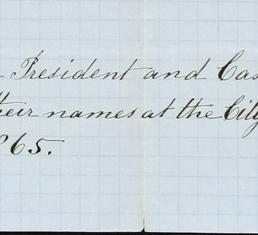 President and Cas
their names at the City
865.